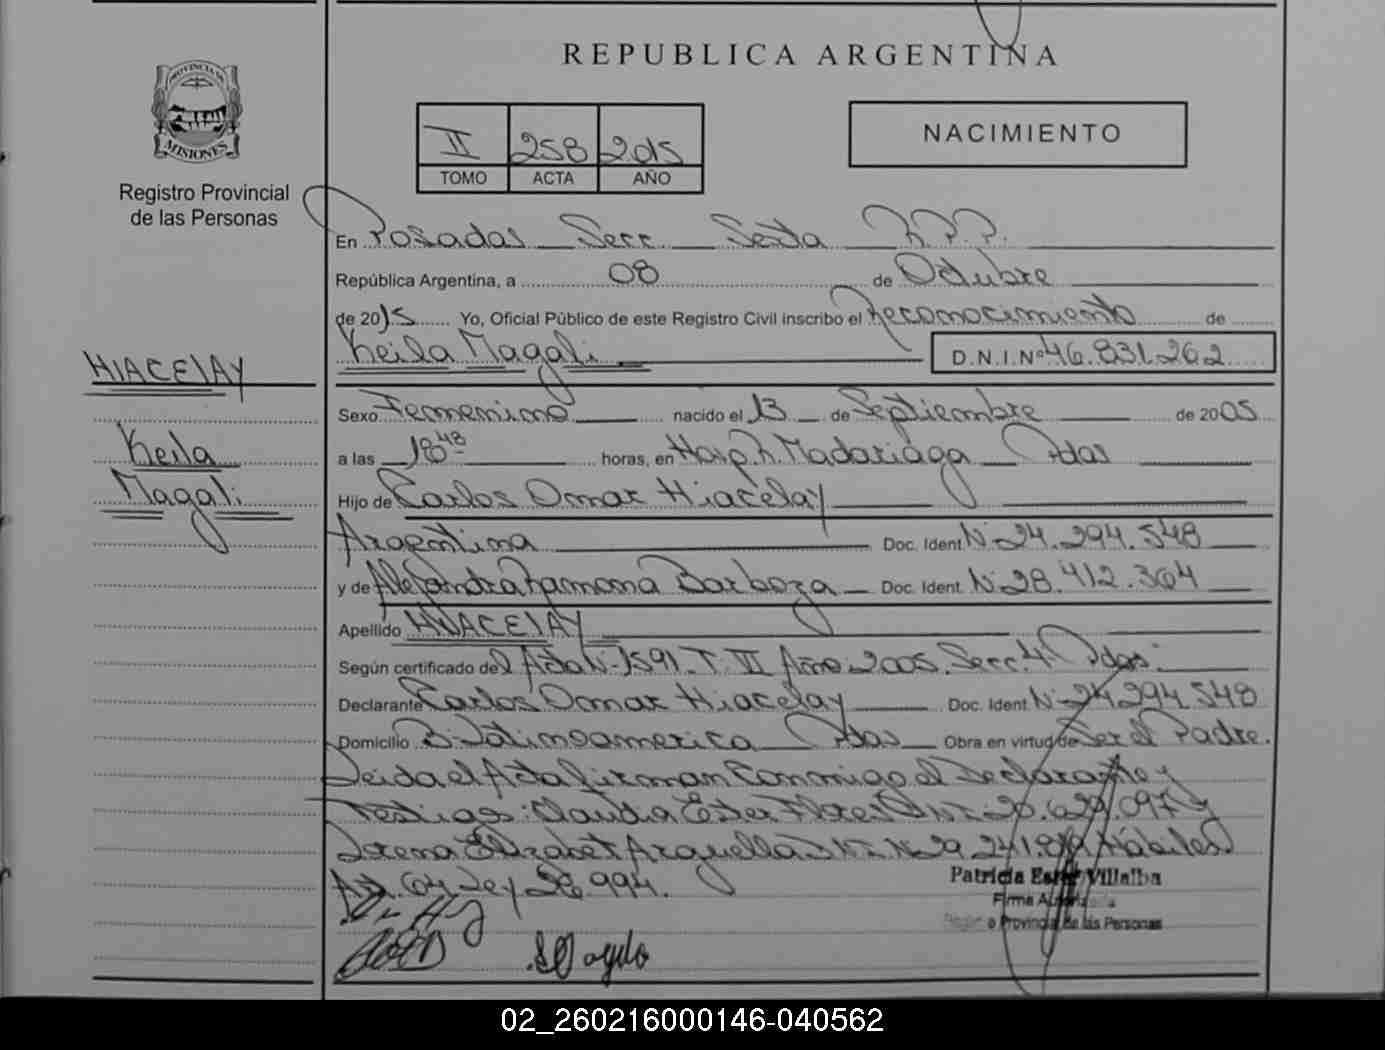 REPUBLICA ARGENTINA
PROVINCIA DE
MISIONES
Registro Provincial
de las Personas
II 258 2015
TOMO ACTA AÑO
NACIMIENTO
En Posadas Secc. Sexta R.P.P.
República Argentina, a 08 de Octubre
de 2015 Yo, Oficial Público de este Registro Civil inscribo el Reconocimiento de
Keila Magali D.N.I.Nº 46.831.262
HIACELAY
Keila
Magali
Sexo Femenino nacido el 13 de Septiembre de 2005
a las 18 48 horas, en Hosp. R. Madariaga Pdas
Hijo de Carlos Omar Hiacelay
Argentina Doc. Ident. Nº 24.294.548
y de Alejandra Ramona Barboza Doc. Ident. Nº 28.412.364
Apellido HIACELAY
Según certificado del Acta Nº 1591 T. III Año 2005. Secc. 4º Pdas.
Declarante Carlos Omar Hiacelay Doc. Ident. Nº 24.294.548
Domicilio B. Latinoamerica Pdas Obra en virtud de Ser el Padre.
Leida el Acta firman Conmigo el Declarante y
Testigos: Claudia Ester Flores DNI: 20.629.097 y
Lorena Elizabet Arguello DNI: Nº 29.241. Hábiles
Art. 64 Ley 26.994.
Patricia Ester Villalba
Firma Autorizada
Registro Provincial de las Personas
02_260216000146-040562